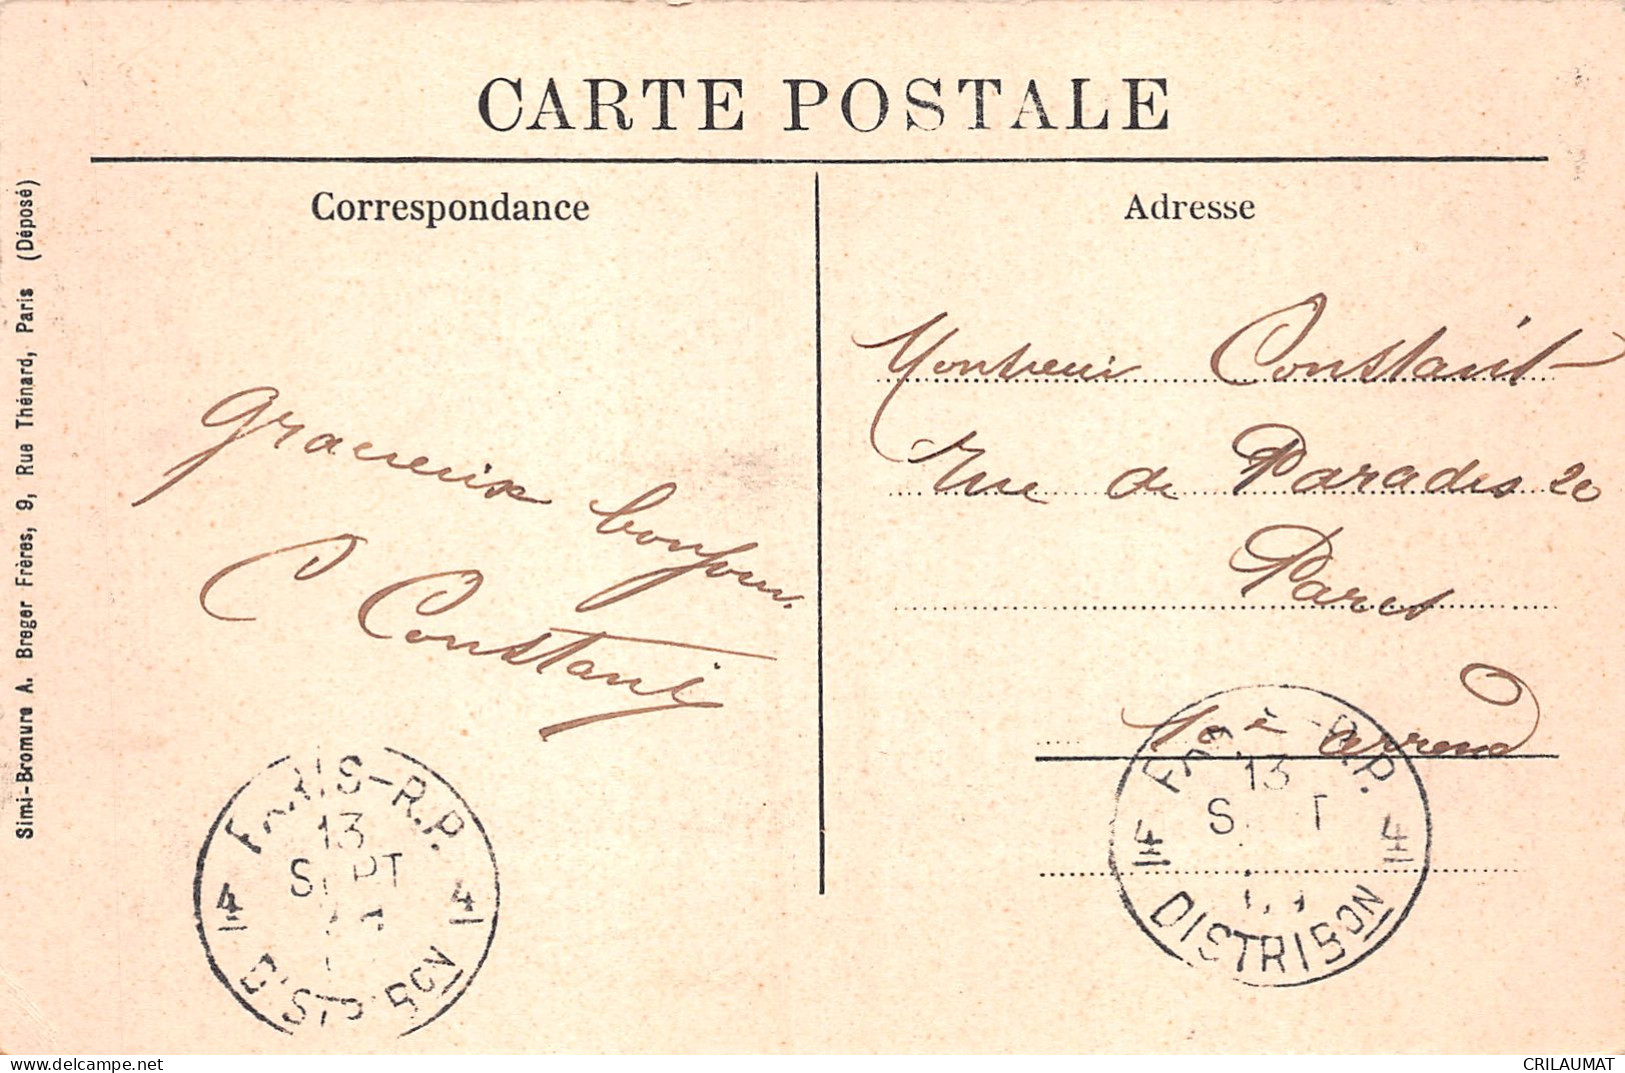 CARTE POSTALE
Correspondance
Adresse
Simi-Bromure A. Breger Frères, 9, Rue Thénard, Paris (Déposé)
gracieux bonjour
C Constant
Monsieur Constant
Rue de Paradis 20
Paris
10è arrond
PARIS-R.P.
13
SEPT
4 4
DISTRIBON
PARIS-R.P.
13
S T
4 4
DISTRIBON
delcampe.net
CRILAUMAT